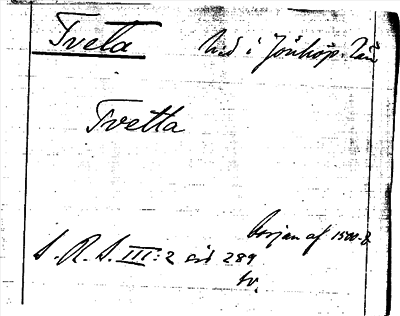 Tveta hd i Jönköp. län
Tvetta
början af 1500-t.
S. R. S. III:2 sid 289